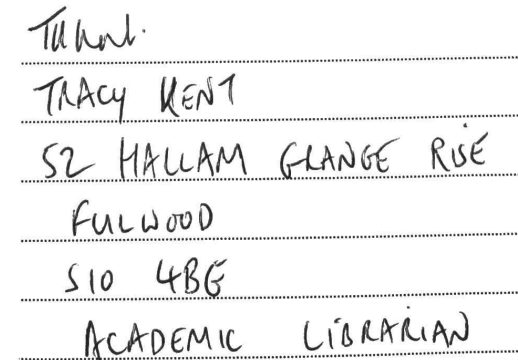 TRACY KENT
52 HALLAM GRANGE RISE
FULWOOD
S10 4BE
ACADEMIC LIBRARIAN